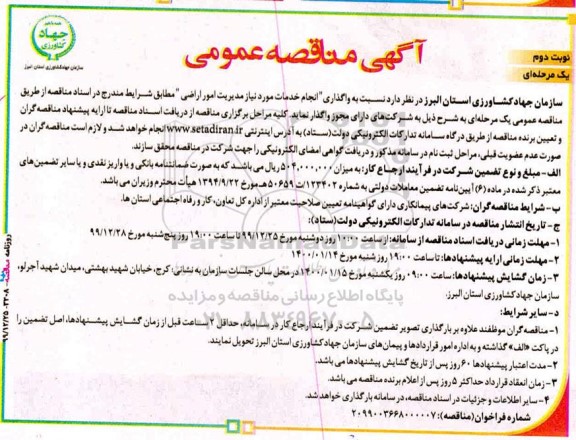 جهاد
کشاورزی
سازمان جهاد کشاورزی استان البرز
آگهی مناقصه عمومی
نوبت دوم
یک مرحله‌ای
سازمان جهاد کشاورزی استان البرز در نظر دارد نسبت به واگذاری "انجام خدمات مورد نیاز مدیریت امور اراضی" مطابق شرایط مندرج در اسناد مناقصه از طریق
مناقصه عمومی یک مرحله‌ای به شرح ذیل به شرکت‌های دارای مجوز واگذار نماید. کلیه مراحل برگزاری مناقصه از دریافت اسناد مناقصه تا ارایه پیشنهاد مناقصه گران
و تعیین برنده مناقصه از طریق درگاه سامانه تدارکات الکترونیکی دولت (ستاد) به آدرس اینترنتی www.setadiran.ir انجام خواهد شد و لازم است مناقصه گران در
صورت عدم عضویت قبلی، مراحل ثبت نام در سامانه مذکور و دریافت گواهی امضای الکترونیکی را جهت شرکت در مناقصه محقق سازند.
الف- مبلغ و نوع تضمین شرکت در فرآیند ارجاع کار: به میزان ۵۰۴،۰۰۰،۰۰۰ ریال می باشد که به صورت ضمانتنامه بانکی و یا واریز نقدی و یا سایر تضمین‌های
معتبر ذکر شده در ماده (۶) آیین‌نامه تضمین معاملات دولتی به شماره ۱۲۳۴۰۲/ت۵۰۶۵۹هـ مورخ ۱۳۹۴/۹/۲۲ هیأت محترم وزیران می باشد.
ب- شرایط مناقصه گران: شرکت‌های پیمانکاری دارای گواهینامه تعیین صلاحیت معتبر از اداره کل تعاون، کار و رفاه اجتماعی استان ها.
ج- تاریخ انتشار مناقصه در سامانه تدارکات الکترونیکی دولت (ستاد):
۱- مهلت زمانی دریافت اسناد مناقصه از سامانه: از ساعت ۱۰:۰۰ روز دوشنبه مورخ ۹۹/۱۲/۲۵ تا ساعت ۱۹:۰۰ روز پنج‌شنبه مورخ ۹۹/۱۲/۲۸
۲- مهلت زمانی ارایه پیشنهادها: تا ساعت ۱۹:۰۰ روز شنبه مورخ ۱۴۰۰/۰۱/۱۴
۳- زمان گشایش پیشنهادها: ساعت ۰۹:۰۰ روز یکشنبه مورخ ۱۴۰۰/۰۱/۱۵ در محل سالن جلسات سازمان به نشانی: کرج، خیابان شهید بهشتی، میدان شهید آجرلو،
سازمان جهاد کشاورزی استان البرز.
د- سایر شرایط:
۱- مناقصه گران موظفند علاوه بر بارگذاری تصویر تضمین شرکت در فرآیند ارجاع کار در سامانه، حداقل ساعت قبل از زمان گشایش پیشنهادها، اصل تضمین را
در پاکت «الف» گذاشته و به اداره امور قراردادها و پیمان‌های سازمان جهاد کشاورزی استان البرز تحویل نمایند.
۲- مدت اعتبار پیشنهادها ۶۰ روز پس از تاریخ گشایش پیشنهادها می باشد.
۳- زمان انعقاد قرارداد حداکثر ۵ روز پس از اعلام برنده مناقصه می باشد.
۴- سایر اطلاعات و جزئیات در اسناد مناقصه، در سامانه بارگذاری خواهد شد.
شماره فراخوان (مناقصه): ۲۰۹۹۰۰۳۶۶۸۰۰۰۰۰۷
روزنامه مناقصه ۲۳۰۸ - ۹۹/۱۲/۲۵
ParsNamadData
پایگاه اطلاع رسانی مناقصه و مزایده
۰۲۱-۸۸۳۴۹۶۷۰-۵